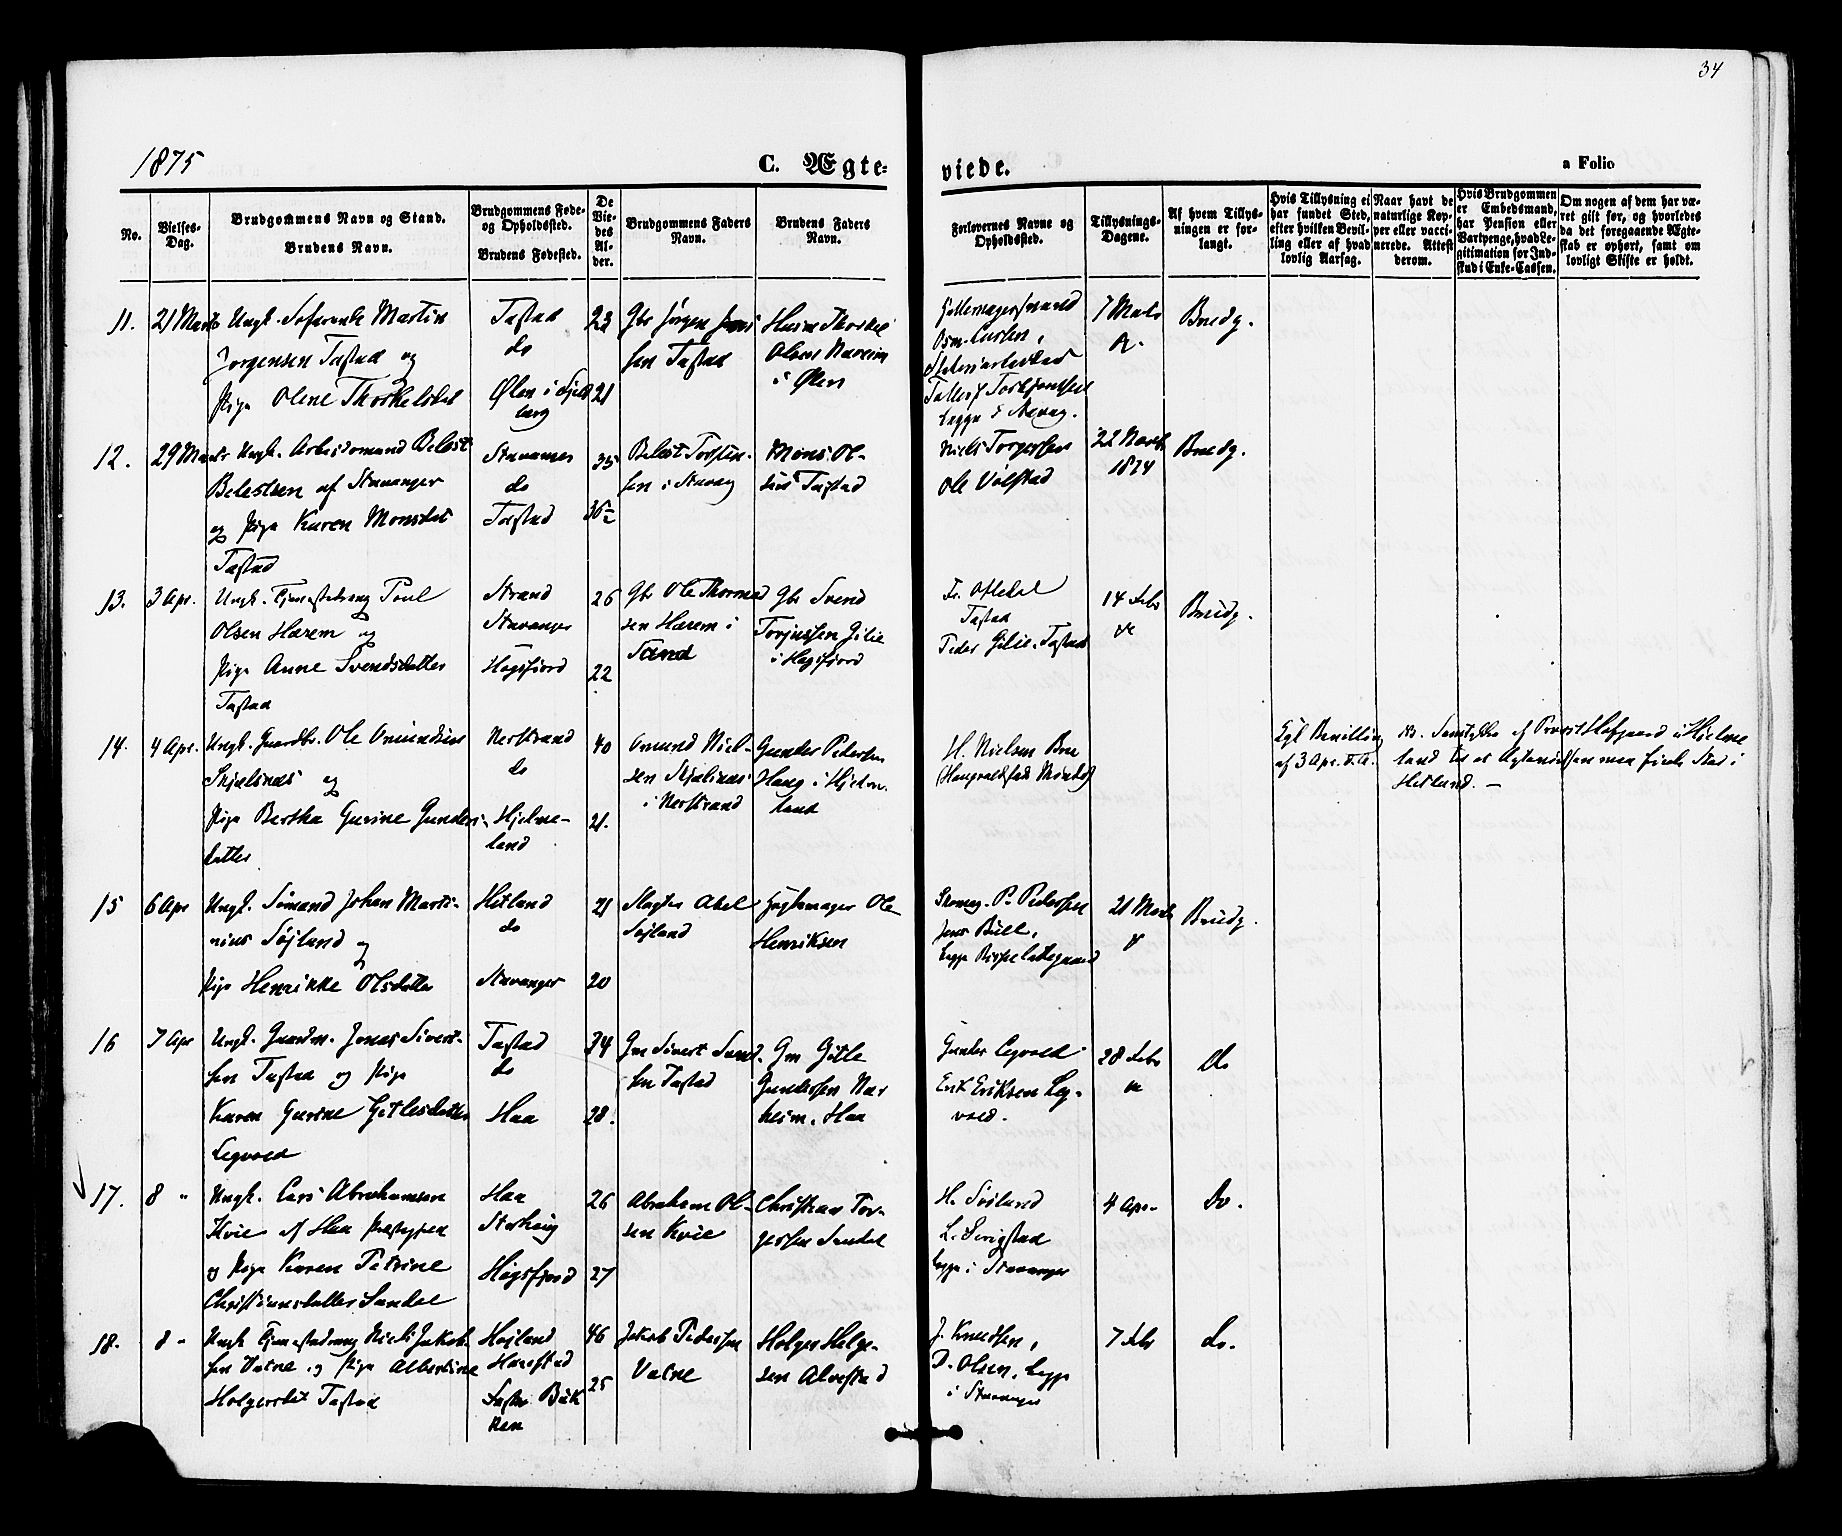 34
1875
C. Ægte-
viede.
a Folio
No.
Vielses-
Dag.
Brudgommens Navn og Stand.
Brudens Navn.
Brudgommens Føde-
og Opholdssted.
Brudens Fødested.
De
Vie-
des
Al-
der.
Brudgommens Faders
Navn.
Brudens Faders
Navn.
Forlovernes Navne og
Opholdssted.
Tillysnings-
Dagene.
Af hvem Tillys-
ningen er for-
langt.
Hvis Tillysning ei
har fundet Sted,
efter hvilken Bevil-
ling eller af hvad
lovlig Aarsag.
Naar havt de
naturlige Kop-
per eller vacci-
nerede. Attest
derom.
Hvis Brudgommen
er Embedsmand,
har Pension eller
Vartpenge, hvad Le-
gitimation for Ind-
skud i Enke-Cassen.
Om nogen af dem har væ-
ret gift før, og hvorledes
da det foregaaende Ægte-
skab er ophørt, samt om
lovligt Skifte er holdt.
11.
21 Marts
Ungk. Martin
Jørgensen Tastad og
Pige Olene Thorkelsdat
Tastad
do
Ølen i
21
Gbr Jørgen
sen Tastad
Husm Thorkel
i Ølen
7 Marts
Brudg.
12.
29 Marts
Ungk. Arbeidsmand Belest
Belestsen af Stavanger
og Pige Karen Monsdat
Tastad
Stavanger
do
Tastad
35
36½
Belest Torsten-
sen i Stavang
Mons Ol-
sen Tastad
Niels Torgersen
Ole Volstad
22 Novb
1874
Brudg.
13.
3 Apr.
Ungk. Tjenestedreng Poul
Olsen Hærem og
Pige Anne Svendsdatter
Tastad
Strand
Stavanger
Høgsfjord
26
22
Gbr Ole Thormod
sen Hærem i
Gbr Svend
Torjussen Gilje
i Høgsfjord
Tastad
Peder Gilje, Tastad
14 Febr
Brudg.
14.
4 Apr.
Ungk. Gaardbr. Ole Omundsen
Skjelsnæs og
Pige Bertha Gurine Gunders-
datter
Nerstrand
do
Hjelme-
land
40
21.
Omund Niel-
sen Skjelsnæs
i Nerstrand
Gunder Pedersen
Haug i Hjelm-
land
H. Nielsen Boe
Kgl Bevilling
af 3 Apr. d. A.
NB. Samtykke af Provst Hofgaard i Hjelme
land til at Ægtevielsen maa finde Sted i
Hetland. –
15
6 Apr
Ungk. Sømand Johan Marti-
nius Søiland og
Pige Henrikke Olsdatter
Hetland
do
Stavanger
21
20
Slagter Abel
Søiland
Ole
Henriksen
P. Pedersen
Jens Bull,
21 Marts
Brudg.
16
7 Apr
Ungk. Gaardm. Jonas Sivert-
sen Tastad og Pige
Karen Gurine Gitlesdatter
Legvold
Tastad
do
Haa
34
28.
Gm Sivert
sen Tastad
Gm Gitle
Gundersen Nær
heim, Haa
Gunder Legvold
Erik Eriksen Leg-
vold.
28 Febr
Do
17.
8 "
Ungk. Lars Abrahamsen
Kvie af Haa Præstegjeld
og Pige Karen Petrine
Christiansdatter Sandal
Haa
Høgsfjord
26
27
Abraham Ol-
sen Kvie
Christian Tor-
gersen Sandal
H. Søiland
L. Serigstad
begge i Stavanger
4 Apr.
Do.
18.
8 "
Ungk Tjenestedreng Niels Jakob-
sen Vatne og Pige Albertine
Holgersdat Tastad
Høiland
46
25
Jakob Pedersen
Vatne
Holger Helge-
sen Alvestad
J. Knudsen,
Olsen, begge
i Stavanger
7 Febr
Do.